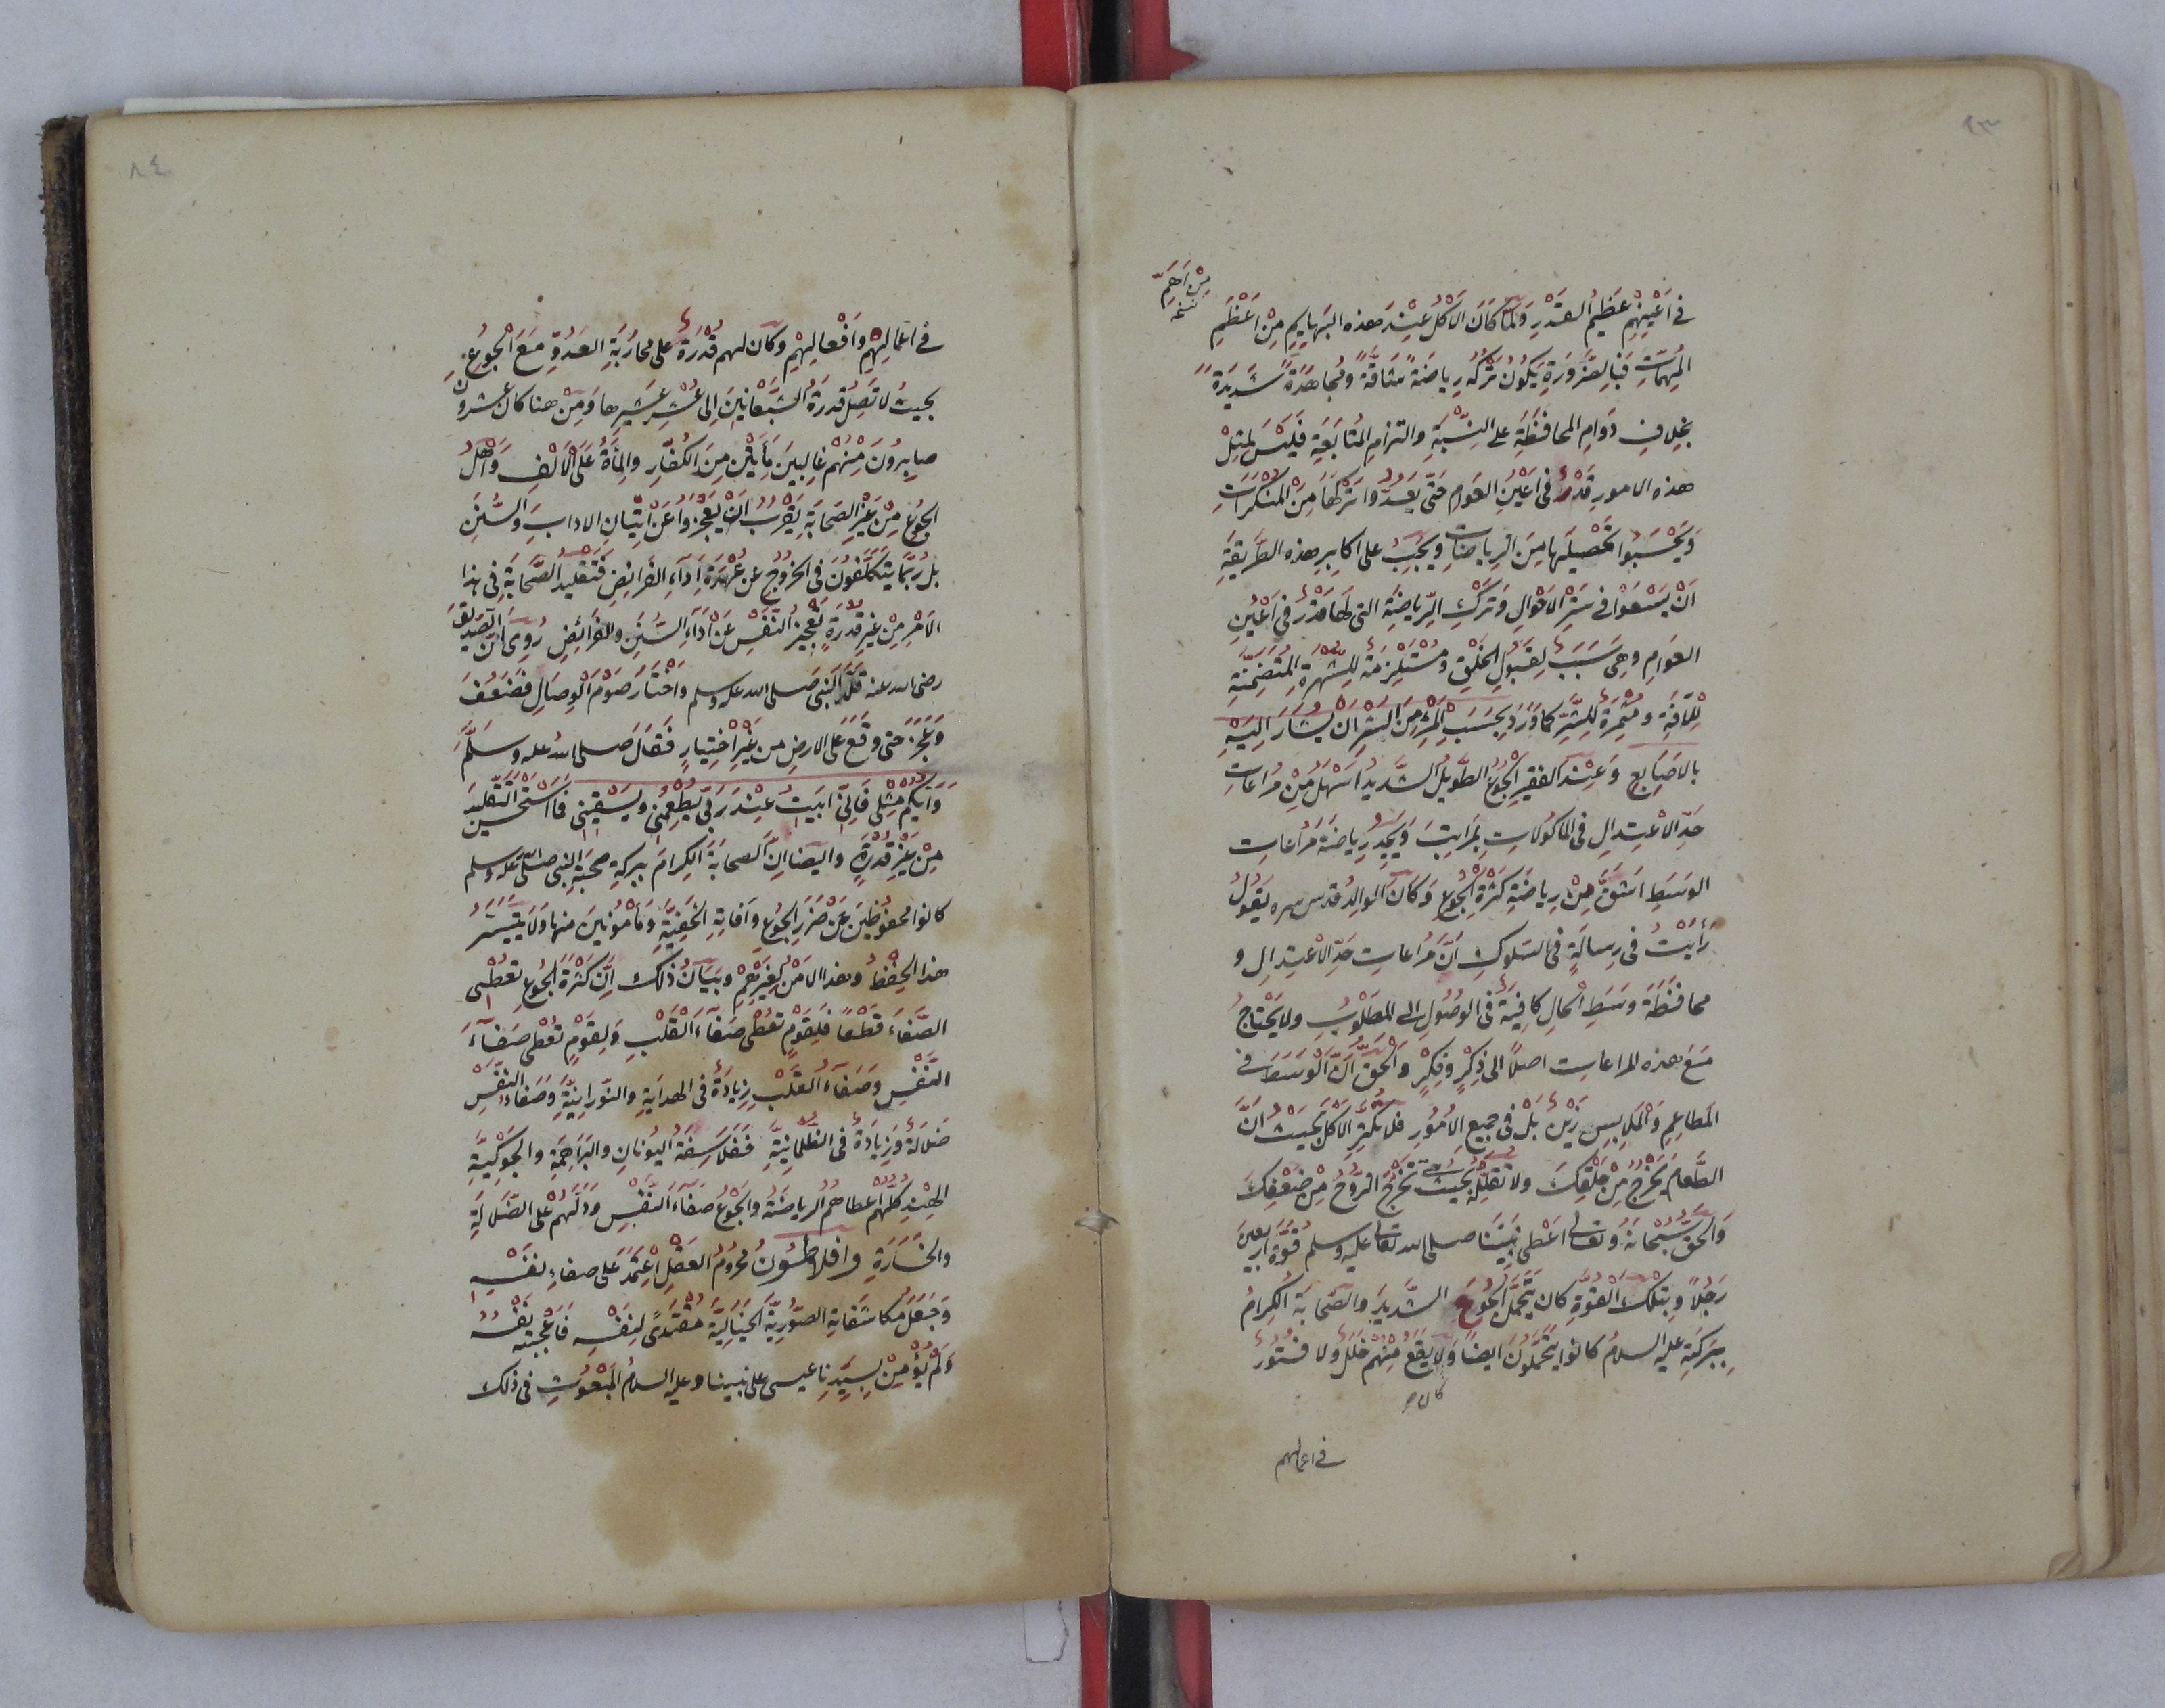 ٨٣
من اهم
نسخه
فى اعينهم عظيم القدر ولما كان الاكل عند هذه البهايم من اعظم
المهمات فبالضرورة يكون تركه رياضة شاقة ومجاهدة شديدة
بخلاف دوام المحافظة على النسبة والتزام المتابعة فليس لمثل
هذه الامور قدر فى اعين العوام حتى يعدوا تركها من المنكرات
ويحسبوا تحصيلها من الرياضات ويجب على اكابر هذه الطريقة
ان يسعوا فى ستر الاحوال وترك الرياضة التى لها قدر فى اعين
العوام وهى سبب لقبول الخلق ومستلزمة للشهرة المتضمنة
للآفة ومثمرة للشر كما ورد بحسب المرء من الشر ان يشار اليه
بالاصابع وعند الفقير الجوع الطويل الشديد اسهل من مراعات
حد الاعتدال فى الماكولات بمراتب ويجد رياضة مراعات
الوسط اشق من رياضة كثرة الجوع وكان الوالد قدس سره يقول
رأيت فى رسالة فى السلوك ان مراعات حد الاعتدال و
محافظة وسط الحال كافية فى الوصول الى المطلوب ولا يحتاج
مع هذه المراعات اصلا الى ذكر وفكر والحق ان الوسط فى
المطاعم والملابس زين بل فى جميع الامور فلا تكثر الاكل بحيث ان
الطعام يخرج من حلقك ولا تقلله بحيث تخرج الروح من ضعفك
والحق سبحانه وتعالى اعطى نبينا صلى الله تعالى عليه وسلم قوة اربعين
رجلا وبتلك القوة كان يتحمل الجوع الشديد والصحابة الكرام
ببركته عليه السلام كانوا يتحملون ايضا ولا يقع منهم خلل ولا فتور
كان ص
فى اعمالهم
٨٤
فى اعمالهم وافعالهم وكان لهم قدرة على محاربة العدو مع الجوع
بحيث لا تصل قدرة الشبعانين الى عشر عشيرها ومن هنا كان عشرون
صابرون منهم غالبين مأيتين من الكفار والمأة على الالف واهل
الجوع من غير الصحابة يقرب ان يعجزوا عن اتيان الاداب والسنن
بل ربما يتكلفون فى الخروج عن عهدة اداء الفرائض فتقليد الصحابة فى هذا
الامر من غير قدرة تعجيز النفس عن اداء السنن والفرائض روى ان الصديق
رضى الله عنه قلد النبى صلى الله عليه وسلم واختار صوم الوصال فضعف
وعجز حتى وقع على الارض من غير اختيار فقال صلى الله عليه وسلم
وايكم مثلى فانى ابيت عند ربى يطعمنى ويسقينى فما استحسن التقليد
من غير قدرة وايضا ان الصحابة الكرام ببركة صحبة النبى صلى الله عليه وسلم
كانوا محفوظين عن ضرر الجوع وافاته الخفية ومأمونين منها ولا يتيسر
هذا الحفظ وهذا الامن لغيرهم وبيان ذلك ان كثرة الجوع تعطى
الصفاء قطعا فلقوم تعطى صفاء القلب ولقوم تعطى صفاء
النفس وصفاء القلب زيادة فى الهداية والنورانية وصفاء النفس
ضلالة وزيادة فى الظلمانية ففلاسفة اليونان والبراهمة والجوكية
الهند كلهم اعطاهم الرياضة والجوع صفاء النفس ودلهم على الضلالة
والخسارة وافلاطون محروم العقل اعتمد على صفاء نفسه
وجعل مكاشفاته الصورية الخيالية مقتدى لنفسه فاعجبته نفسه
ولم يؤمن بسيدنا عيسى على نبينا وعليه السلام المبعوث فى ذلك